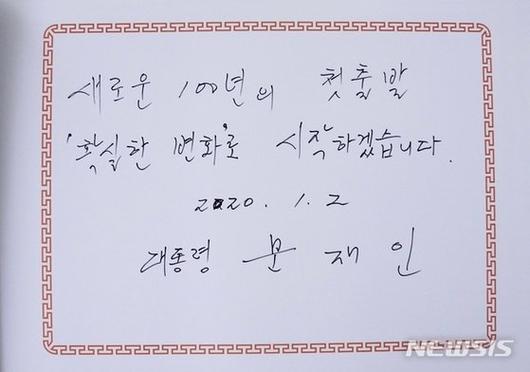 새로운 100년의 첫출발
'확실한 변화'로 시작하겠습니다.
2020. 1. 2
대통령 문재인
NEWSIS